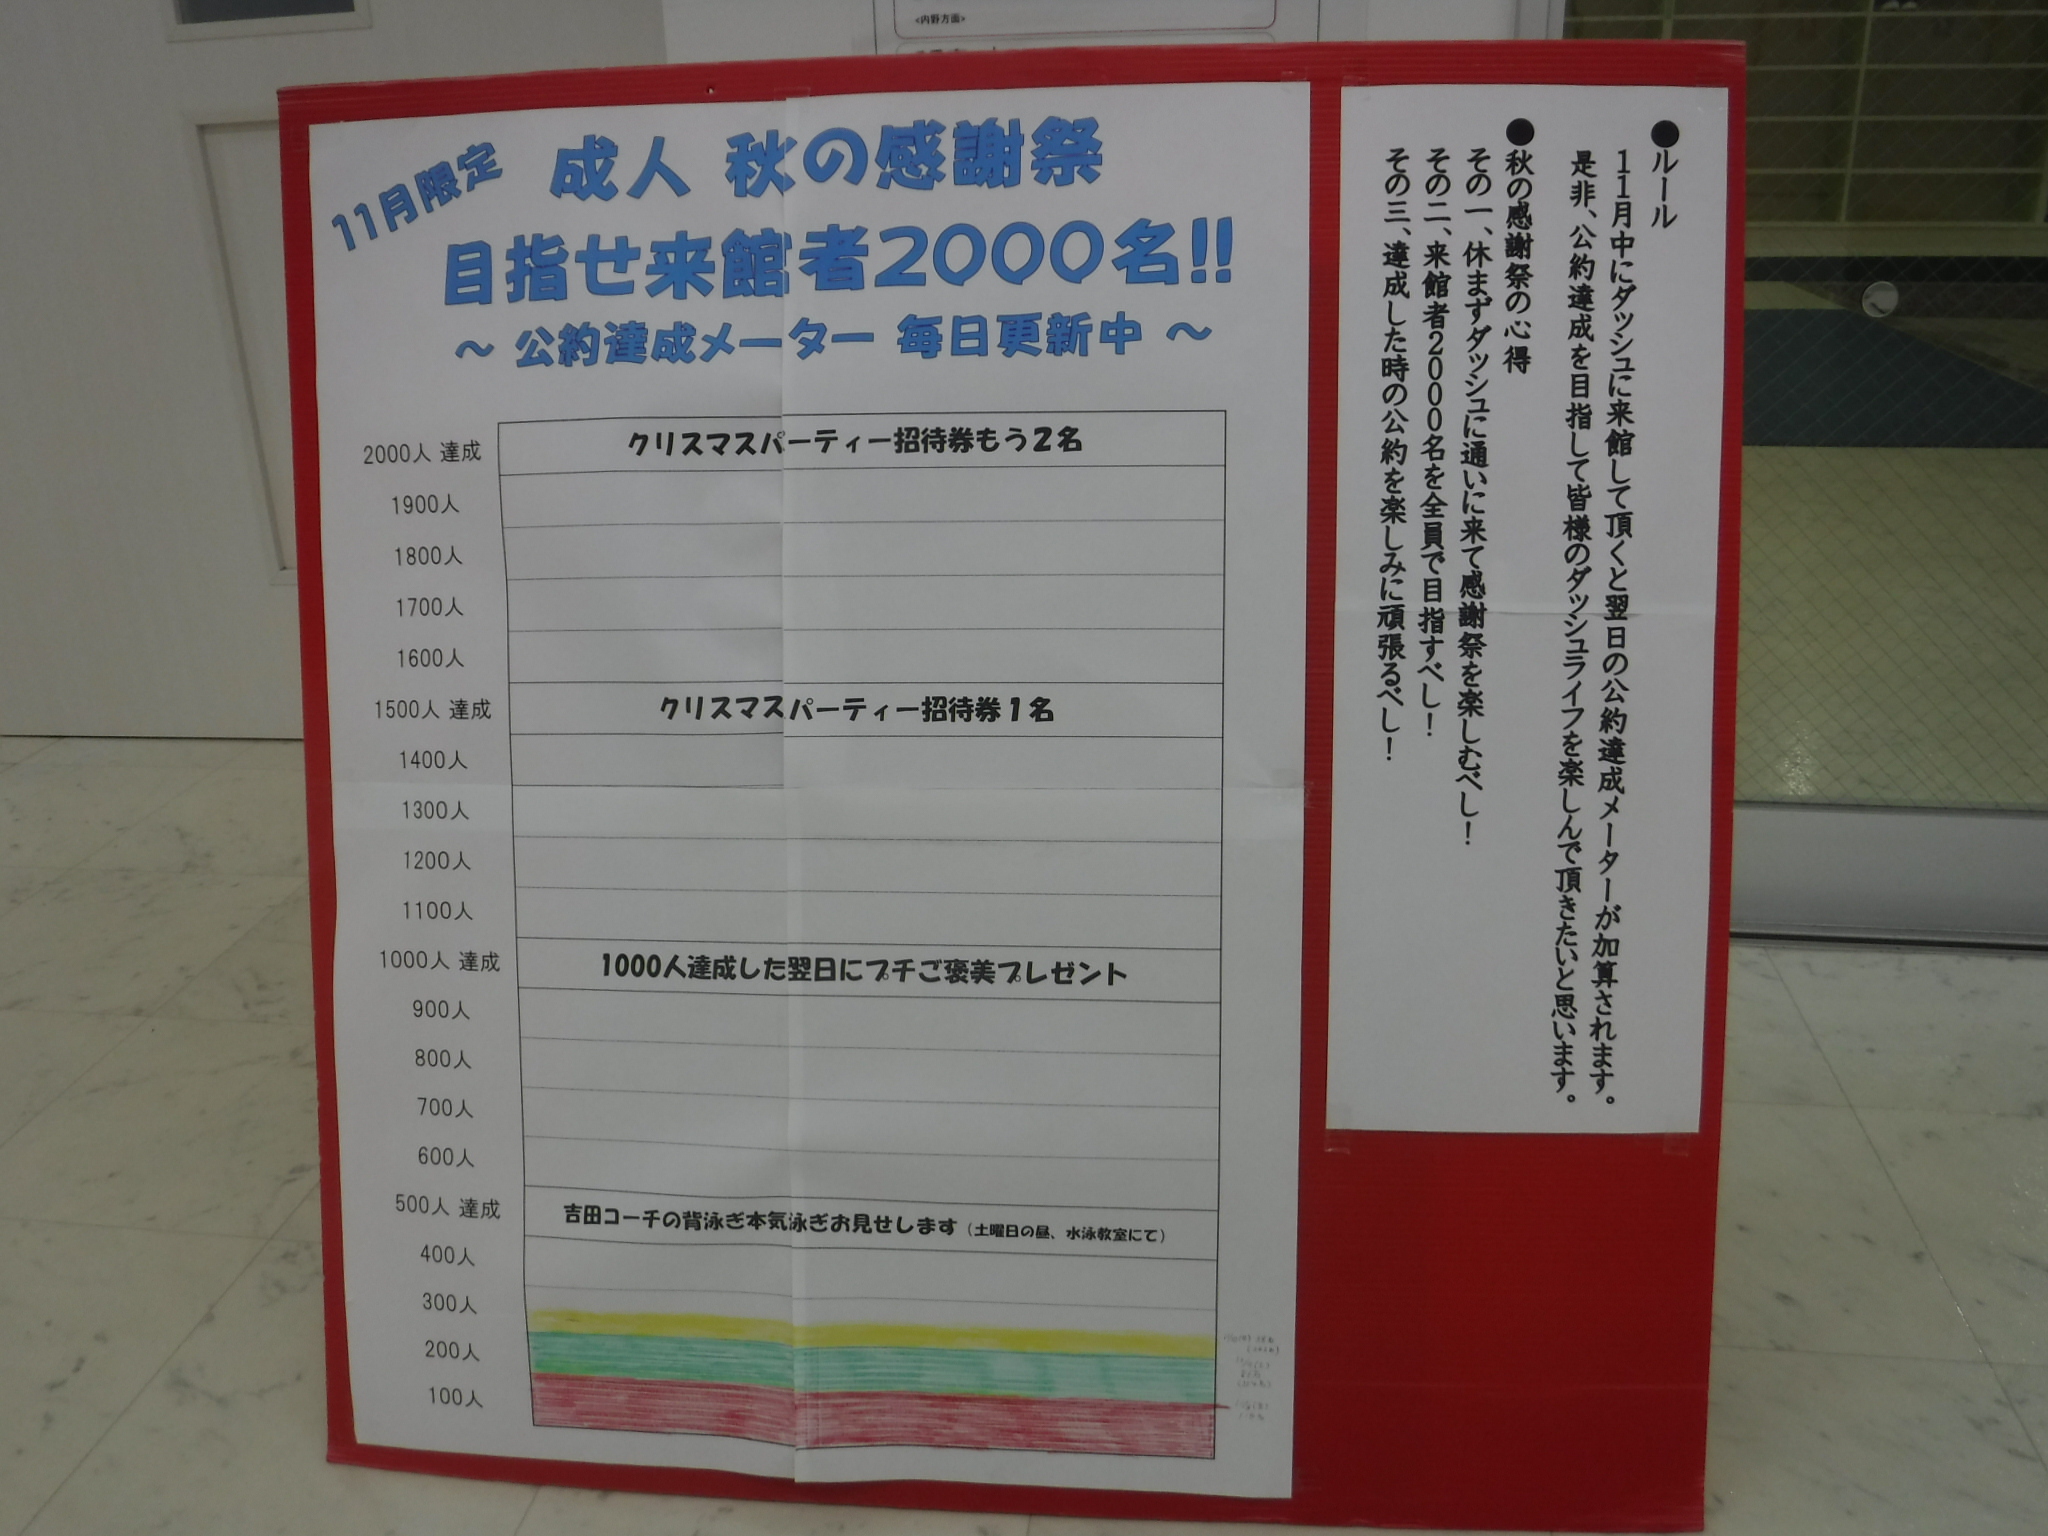 <内野方面>
11月限定
成人 秋の感謝祭
目指せ来館者2000名!!
～ 公約達成メーター 毎日更新中 ～
2000人 達成 クリスマスパーティー招待券もう2名
1900人
1800人
1700人
1600人
1500人 達成 クリスマスパーティー招待券1名
1400人
1300人
1200人
1100人
1000人 達成 1000人達成した翌日にプチご褒美プレゼント
900人
800人
700人
600人
500人 達成 吉田コーチの背泳ぎ本気泳ぎお見せします（土曜日の昼、水泳教室にて）
400人
300人
200人
100人
●ルール
11月中にダッシュに来館して頂くと翌日の公約達成メーターが加算されます。
是非、公約達成を目指して皆様のダッシュライフを楽しんで頂きたいと思います。
●秋の感謝祭の心得
その一、休まずダッシュに通いに来て感謝祭を楽しむべし！
その二、来館者2000名を全員で目指すべし！
その三、達成した時の公約を楽しみに頑張るべし！